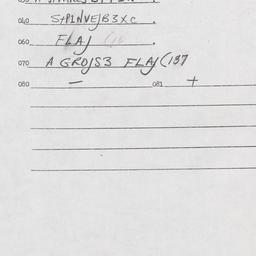 040 S+PINVEJB3XC .
060 FLAJ .
070 A GROJS3 FLAJ(137
080 — 081 +